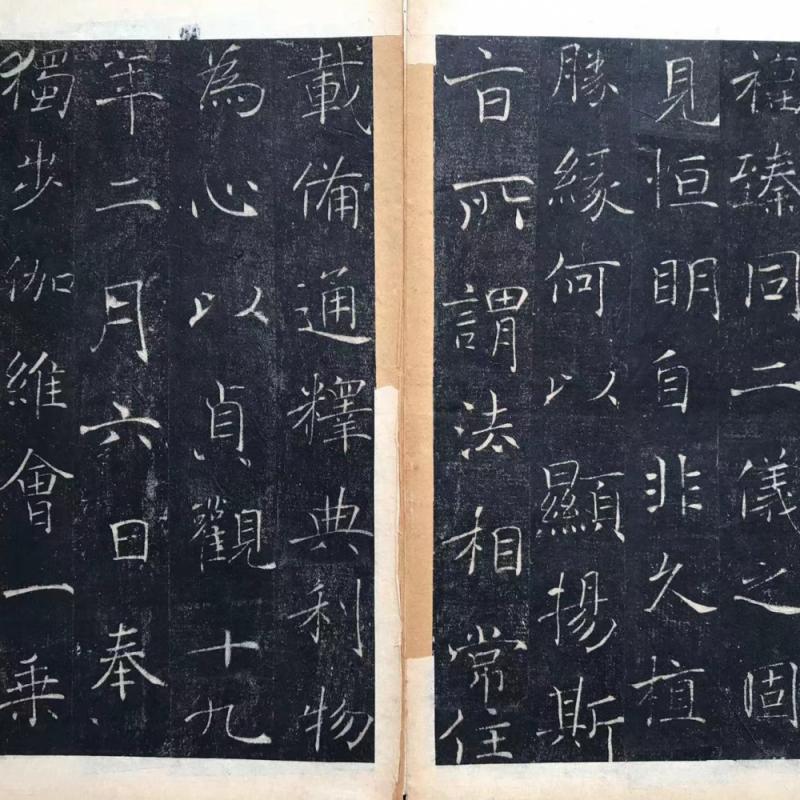 福臻同二儀之固
見恒明自非久植
勝緣何以顯揚斯
旨所謂法相常住
載備通釋典利物
為心以貞觀十九
年二月六日奉
獨步伽維會一乘